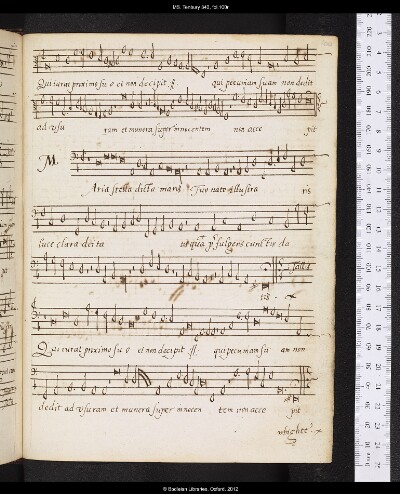 MS. Tenbury 340, fol.100r
Qui iurat proximo su o et non decipit pecuniam suam non dedit
ad vsu ram et munera super innocentem non acce pit
M.
Aria stella dicto maris suo nato illustra ris
luce clara deita fulgens cunctis da
tis
Qui iurat proximo su o et non decipit qui pecuniam su am non
dedit ad vsuram et munera super innocen tem non acce pit
© Bodleian Libraries, Oxford, 2012